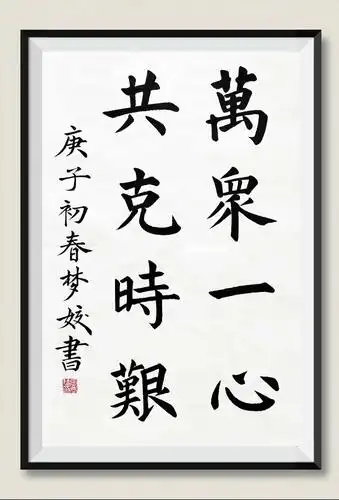 萬眾一心
共克時艱
庚子初春梦姣書